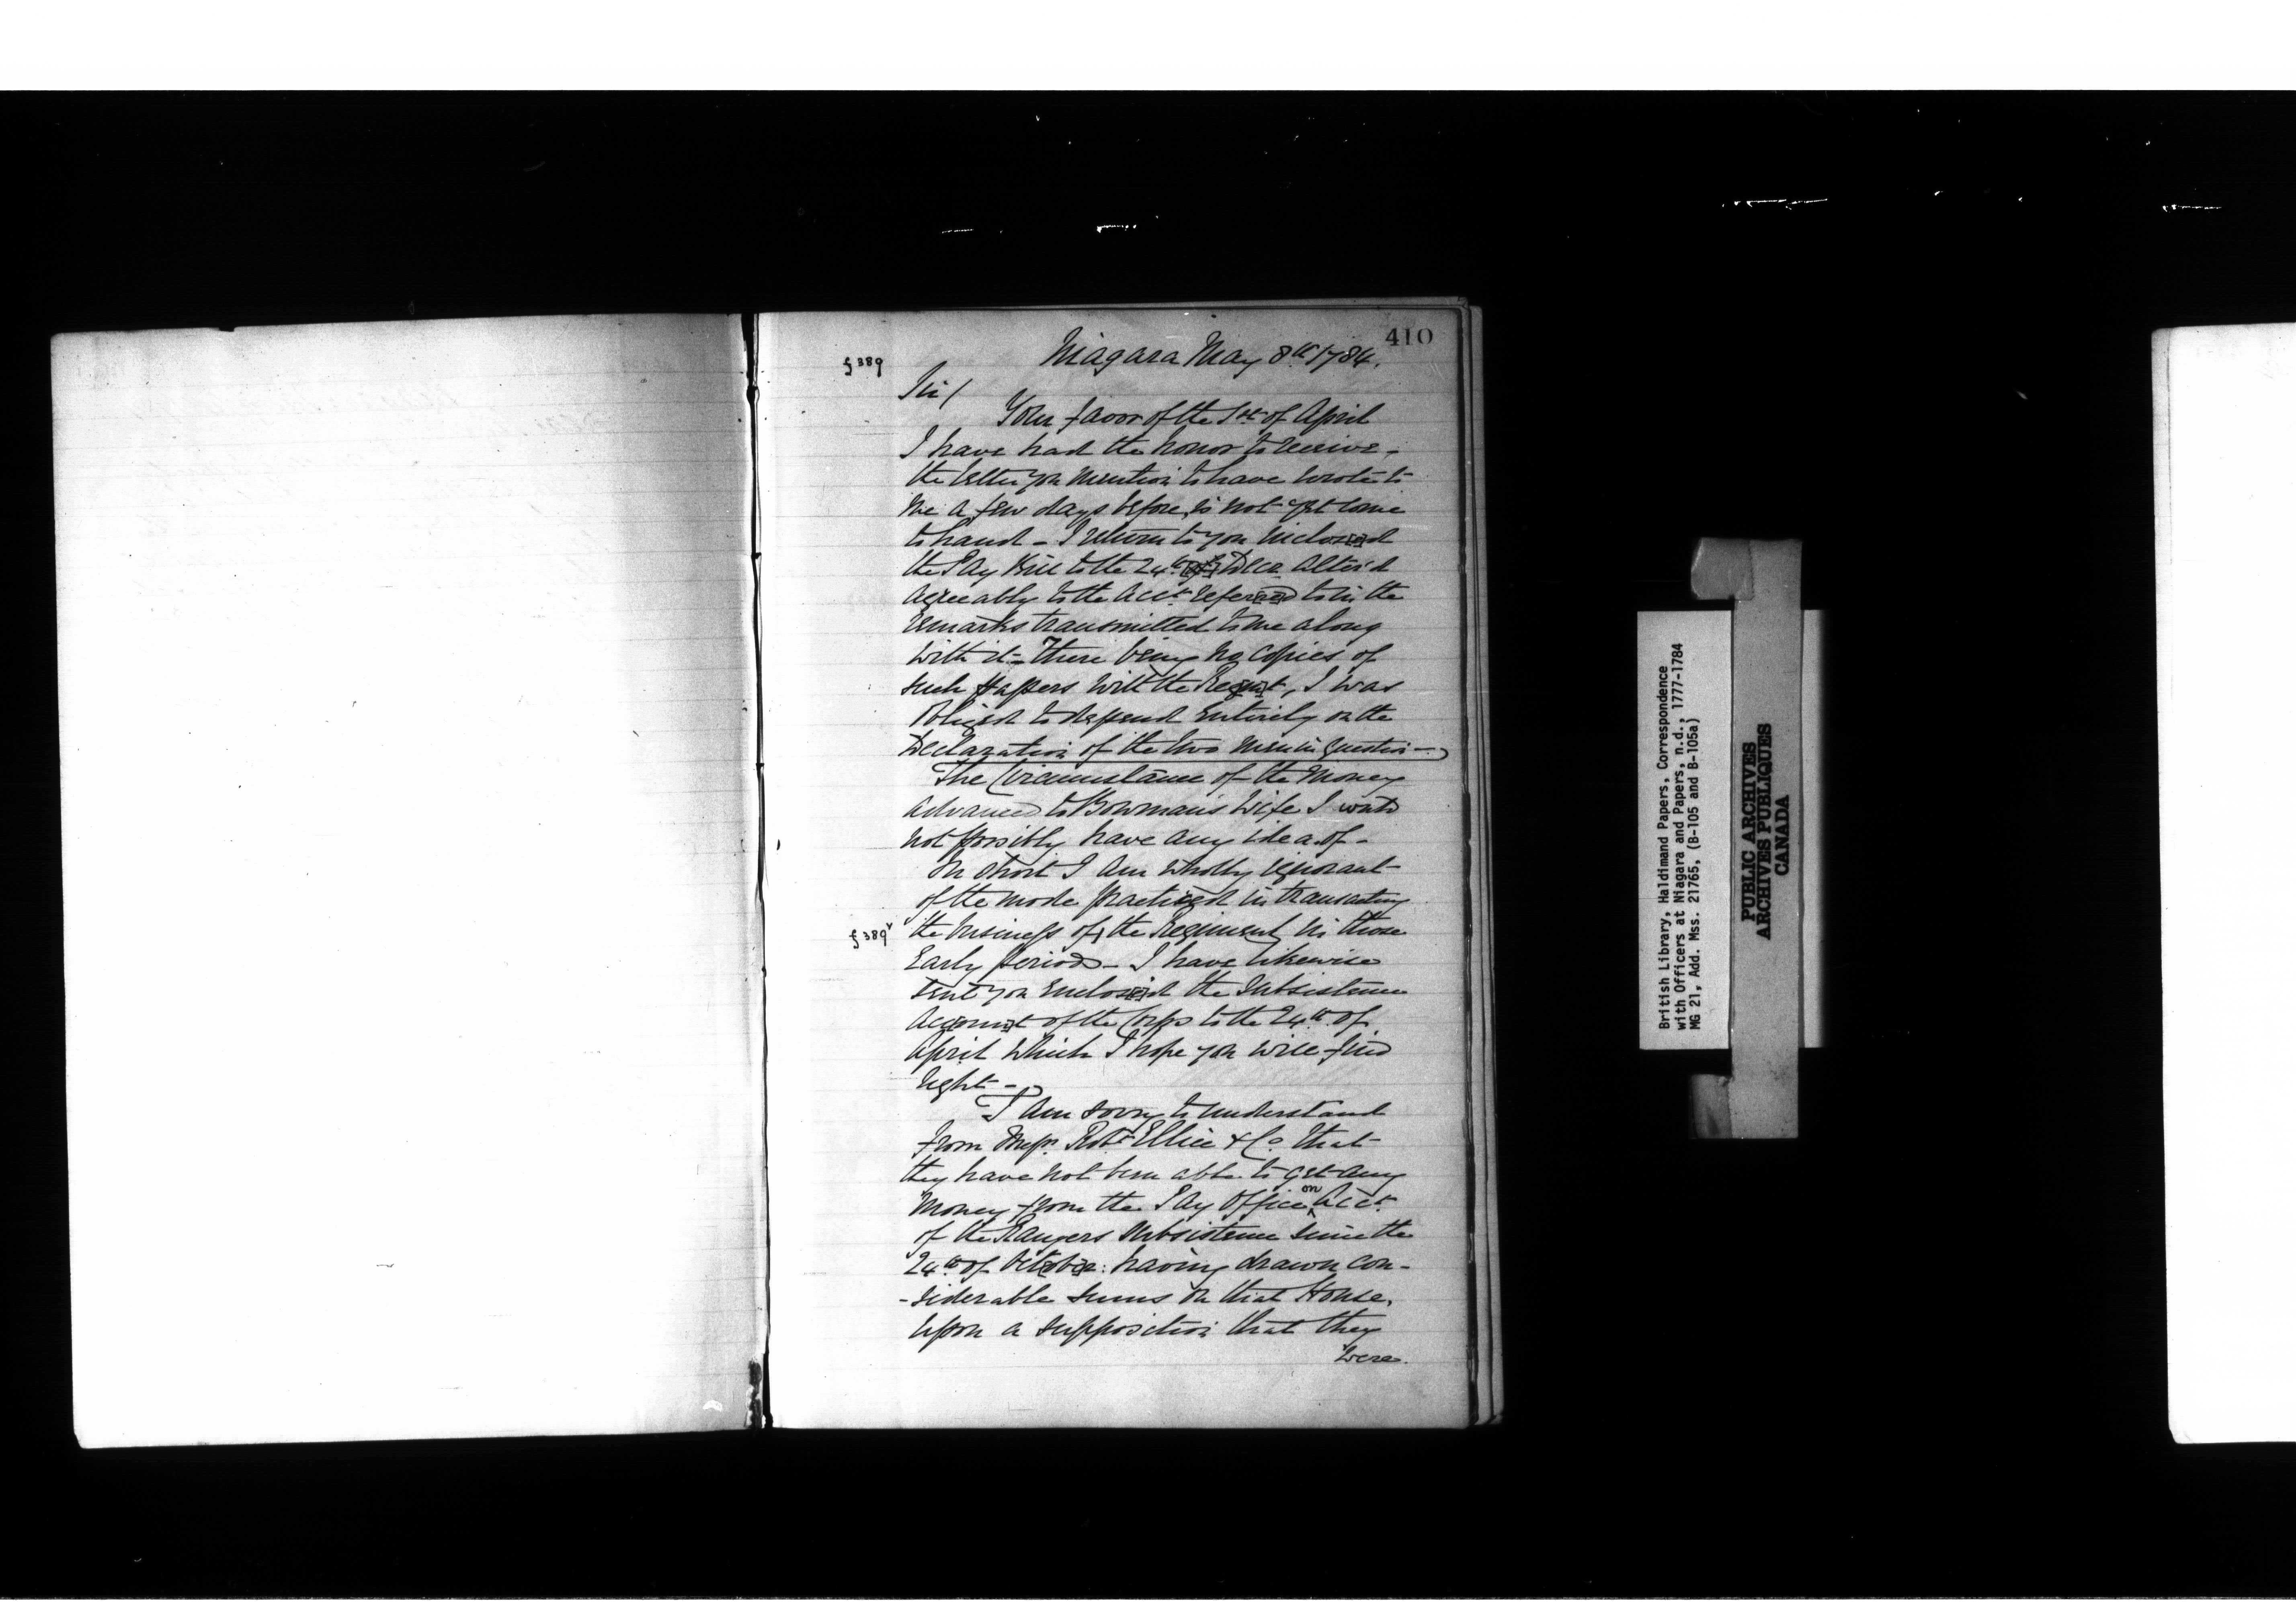 410
f 389
Niagara May 8th 1784.
Sir/
Your favor of the 1st of April
I have had the honor to receive,
the letter you mention to have wrote to
me a few days before, is not yet come
to hand - I return to you inclosed
the Pay Bill to the 24th Decr. alter'd
agreeably to the Acct. referred to in the
remarks transmitted to me along
with it - There being no Copies of
such papers with the Regimt, I was
obliged to depend entirely on the
Declaration of the two men in question -
The Circumstance of the Money
advanced to Bowman's Wife I could
not possibly have any idea of -
In short I am wholly ignorant
of the mode practized in transacting
f 389v
the business of the Regiment in those
Early periods - I have likewise
sent you enclosed the Subsistence
Account of the Corps to the 24th of
April which I hope you will find
right -
I am sorry to understand
from Messrs. Robt. Ellice & Co. that
they have not been able to get any
Money from the Pay Office on Acct.
of the Rangers Subsistence since the
24th of October: having drawn con-
-siderable sums on that House,
upon a supposition that they
were
British Library, Haldimand Papers, Correspondence
with Officers at Niagara and Papers, n.d., 1777-1784
MG 21, Add. Mss. 21765, (B-105 and B-105a)
PUBLIC ARCHIVES
ARCHIVES PUBLIQUES
CANADA